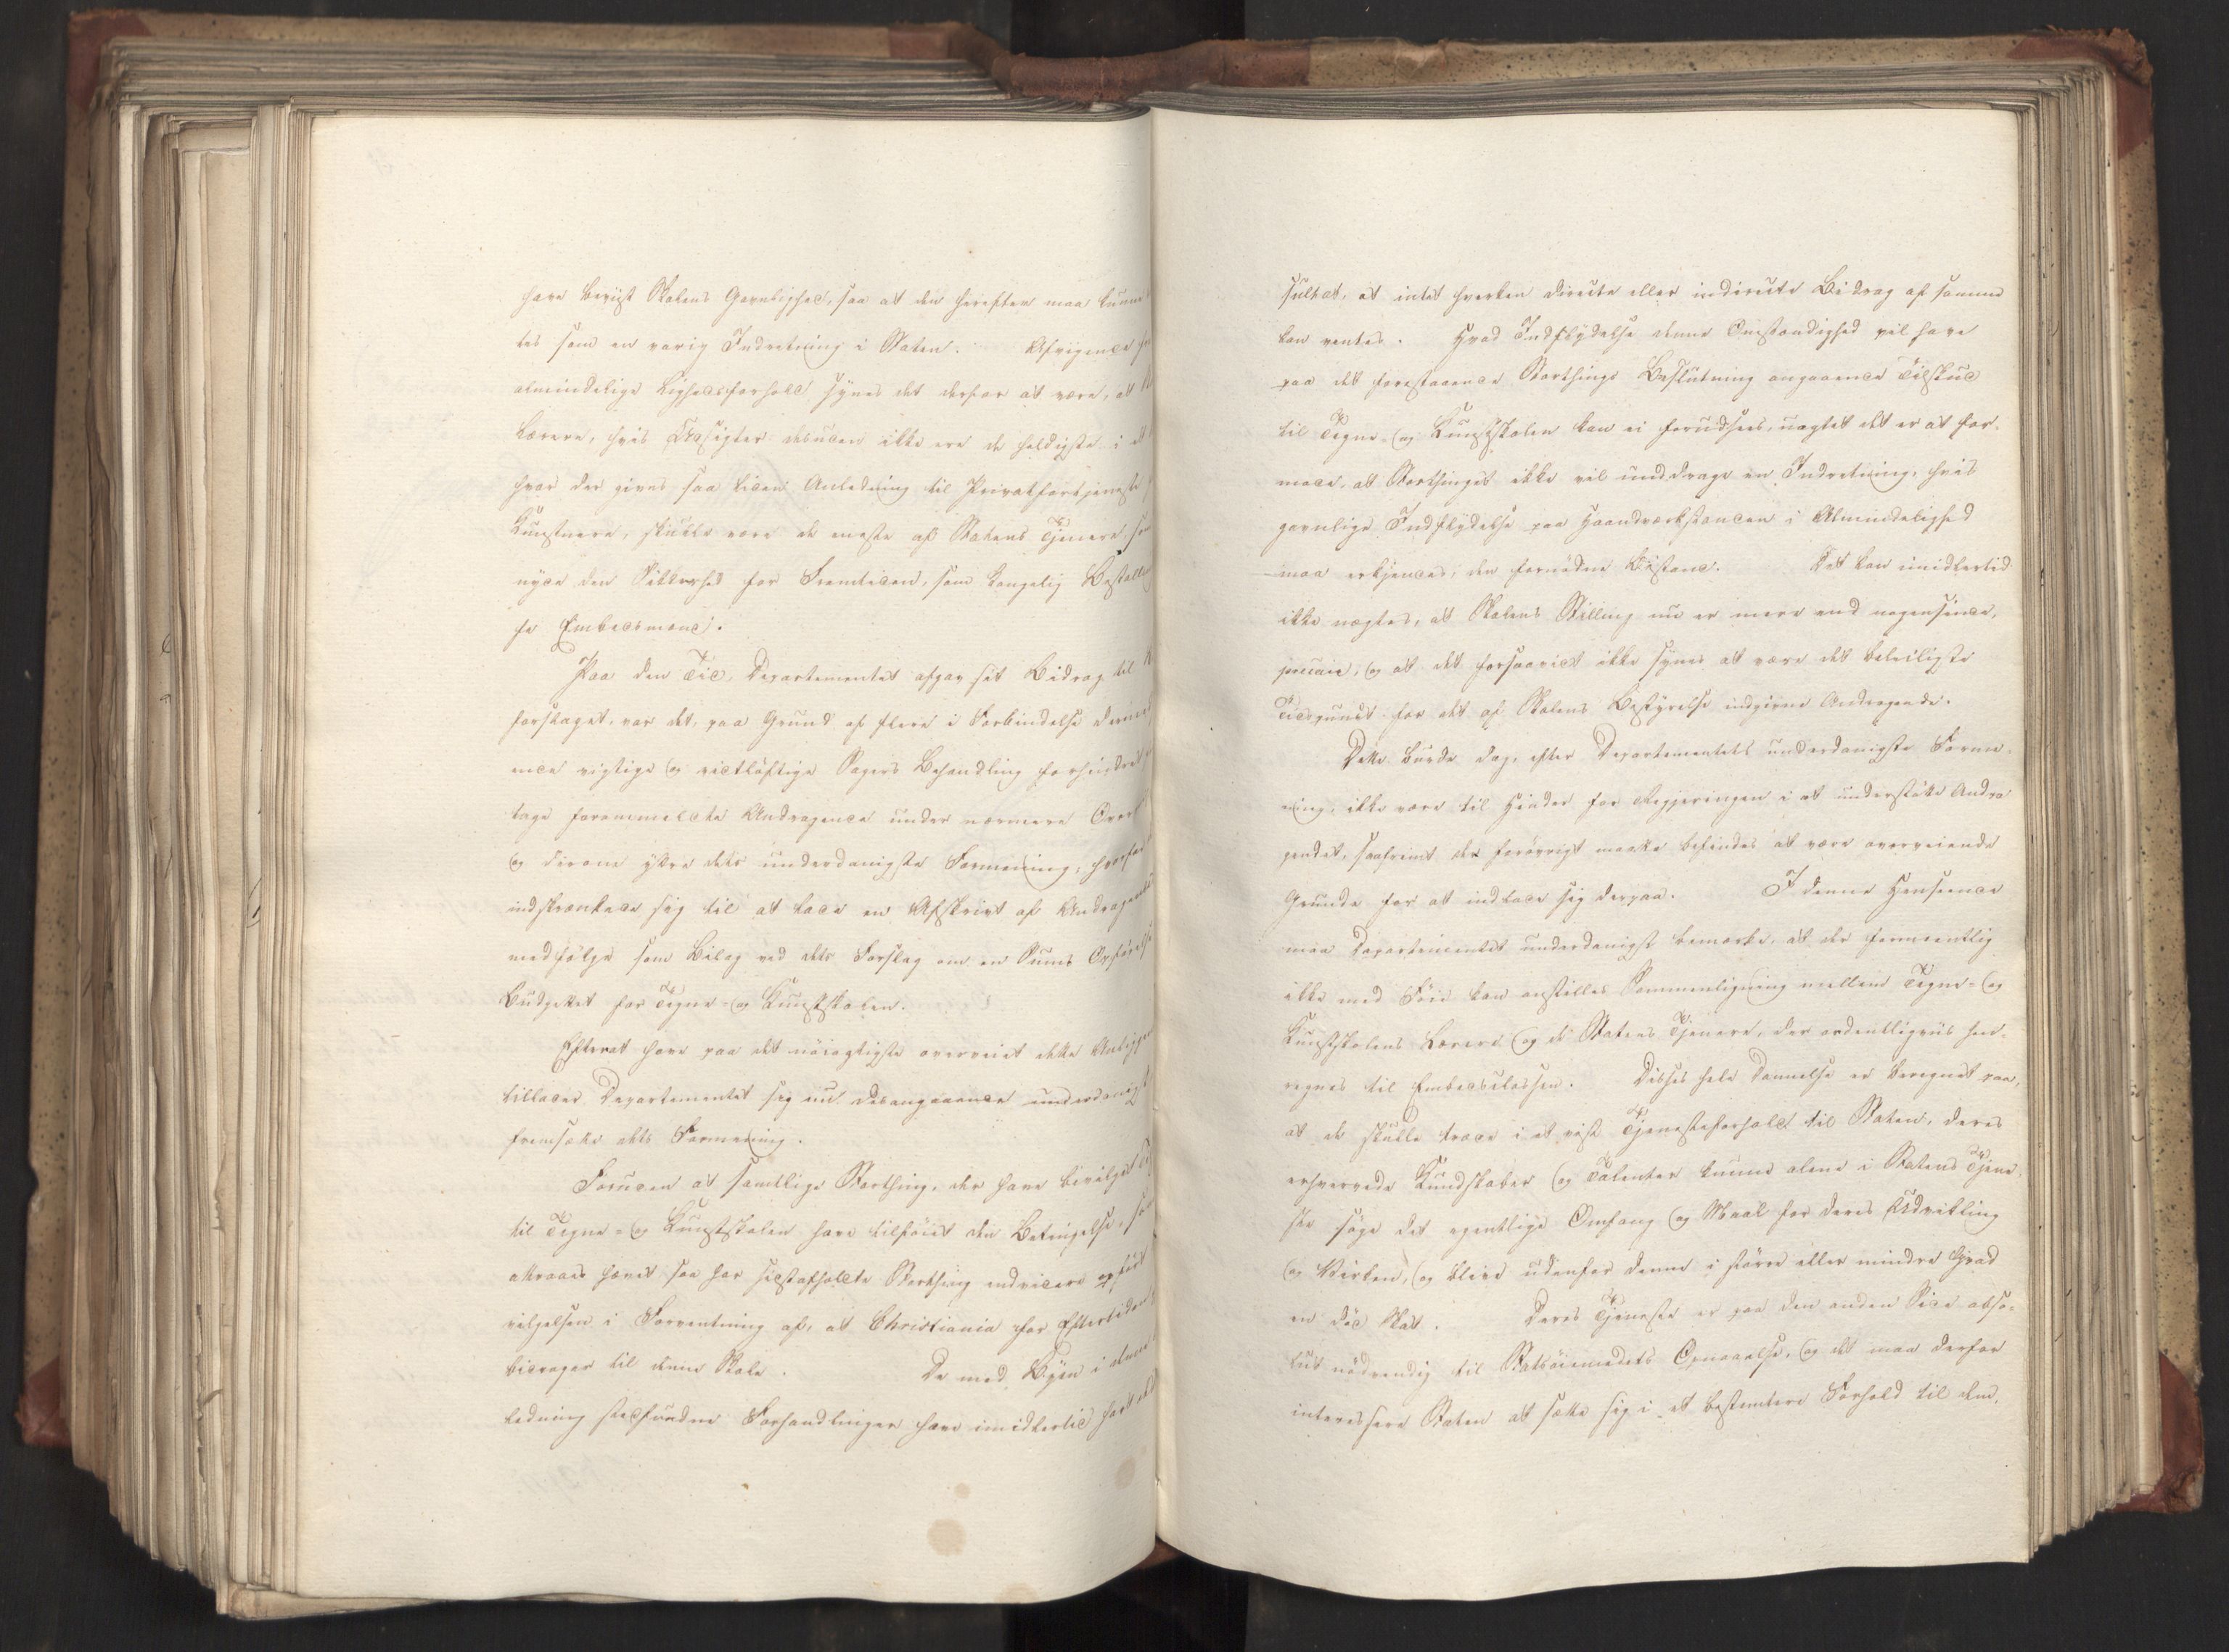 have beviist Skolens Gavnlighed, saa at den herefter maa kunne
tes som en varig Indretning i Staten. Afvigende
almindelige Lighedsforhold synes det derfor at være, at
Lærere, hvis Udsigter desuden ikke ere de heldigste i et
hvor der gives saa liden Anledning til Privatfortjeneste
Kunstnere, skulde være de eneste af Statens Tjenere, som
nyde den Sikkerhed for Fremtiden, som kongelig Bestalling
se Embedsmænd.
Paa den Tid, Departementet afgav sit Bidrag til
forslaget, var det, paa Grund af flere i Forbindelse dermed
ende vigtige og vidtløftige Sagers Behandling forhindret
tage forommeldte Andragende under nærmere Over
og derom yttre dets underdanigste Formening, hvorfor
indskrænkede sig til at lade en Afskrivt af Andragendet
medfølge som Bilag ved dets Forslag om en Sums Opførelse
Budgettet for Tegne- og Kunstskolen.
Efterat have paa det nøiagtigste overveiet dette Anliggen
tillader Departementet sig nu desangaaende underdanigst
fremsætte dets Formening.
Foruden at samtlige Storthing, der have bevilget
til Tegne- og Kunstskolen have tilføiet den Betingelse,
attraaede hævet saa har sidstafholdte Storthing endvidere opført
vilgelsen i Forventning af, at Christiania for Eftertiden
bidrager til denne Skole. De med Byen i denne
ledning stedfundne Forhandlinger have imidlertid havt
sultat, at intet hverken directe eller indirecte Bidrag af samme
kan ventes. Hvad Indflydelse denne Omstændighed vil have
paa det forestaaende Storthings Beslutning angaaende Tilskud
til Tegne- og Kunstskolen kan ei forudsees, uagtet det er at for-
mode, at Storthinget ikke vil unddrage en Indretning, hvis
gavnlige Indflydelse paa Haandværkstanden i Almindelighed
maa erkjendes, den fornødne Bistand. Det kan imidlertid
ikke nægtes, at Skolens Stilling nu er mere end nogensinde,
precair, og at det forsaavidt ikke synes at være det beleiligste
Tidspunct for det af Skolens Bestyrelse indgivne Andragende.
Dette burde dog, efter Departementets underdanigste Forme-
ning, ikke være til Hinder for Regjeringen i at understøtte Andra
gendet, saafremt der forøvrigt maatte befindes at være overveiende
Grunde for at indlade sig derpaa. I denne Henseende
maa Departementet underdanigst bemærke, at der formeentlig
ikke med Føie kan anstilles Sammenligning mellem Tegne- og
Kunstskolens Lærere og de Statens Tjenere, der ordentligviis hen-
regnes til Embedsclassen. Disses hele Dannelse er beregnet paa,
at de skulle træde i et vist Tjenesteforhold til Staten, deres
erhvervede Kundskaber og Talenter kunne alene i Statens Tjene-
ste søge det egentlige Omfang og Maal for deres Udvikling
og Virken, og blive udenfor denne i større eller mindre Grad
en død Skat. Deres Tjeneste er paa den anden Side abso-
lut nødvendig til Statsøiemedets Opnaaelse, og det maa derfor
interessere Staten at sætte sig i et bestemtere Forhold til dem,